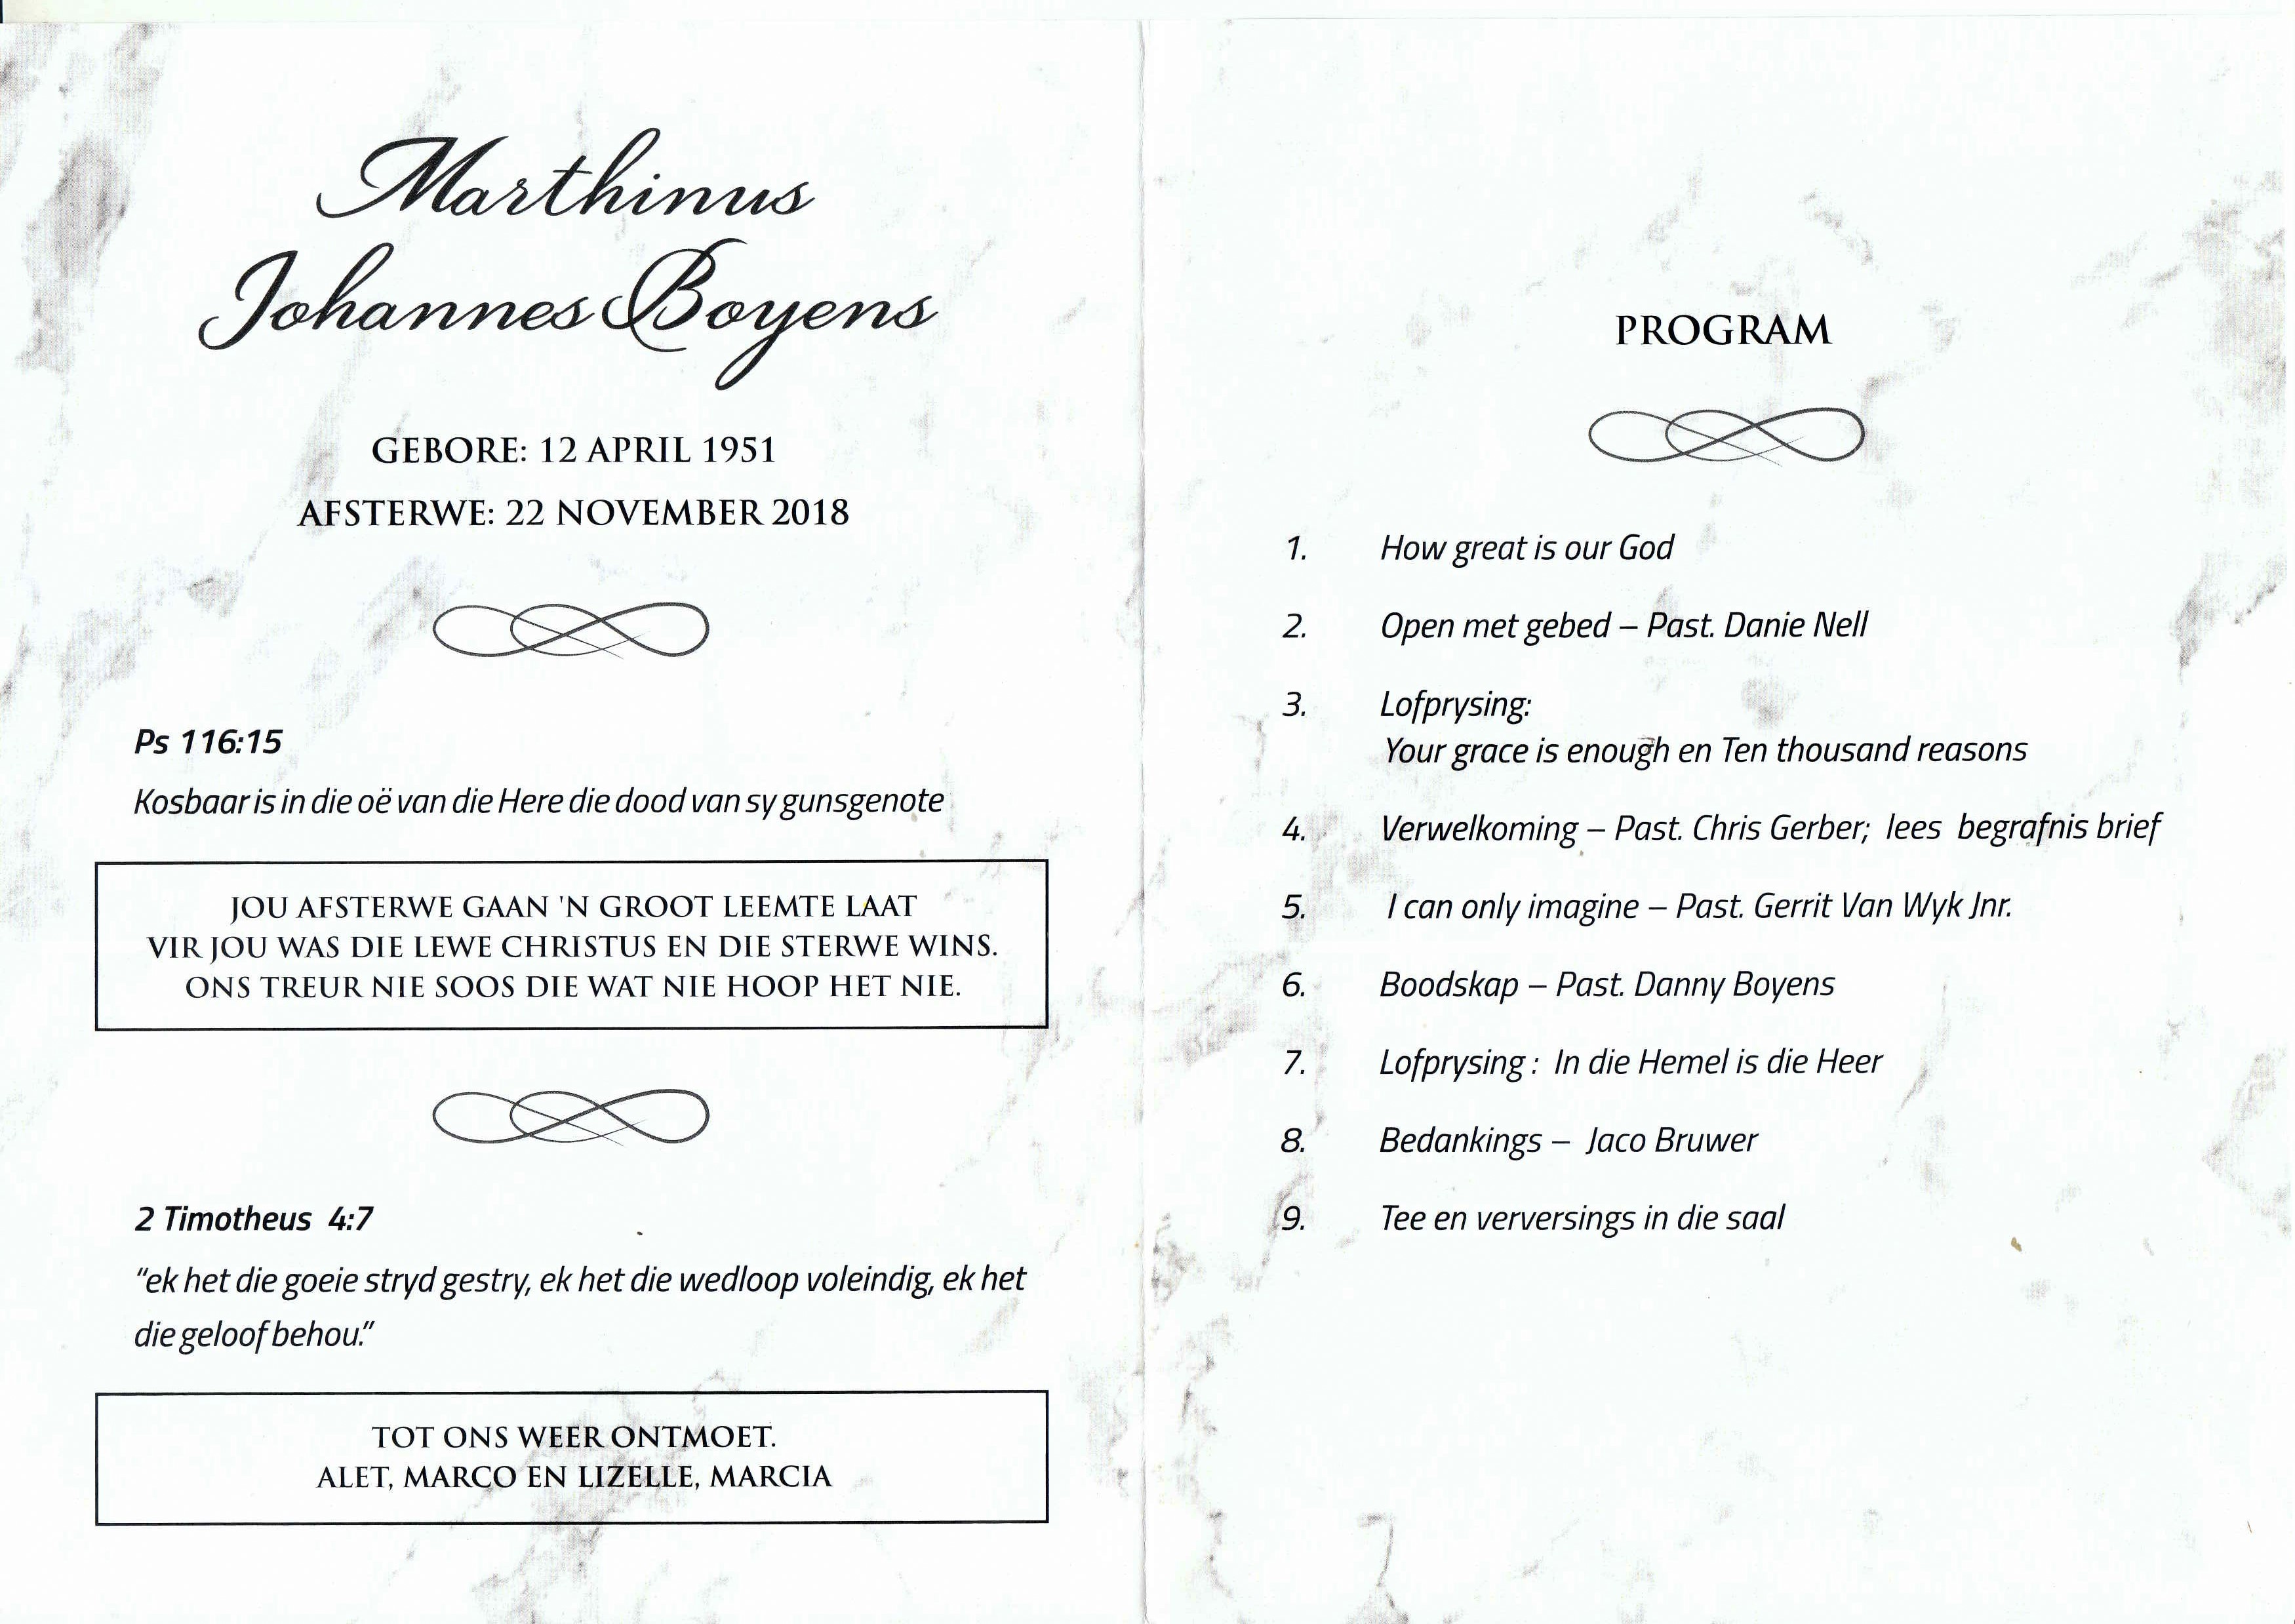 Marthinus
Johannes Boyens
GEBORE: 12 APRIL 1951
AFSTERWE: 22 NOVEMBER 2018
Ps 116:15
Kosbaar is in die oë van die Here die dood van sy gunsgenote
JOU AFSTERWE GAAN 'N GROOT LEEMTE LAAT
VIR JOU WAS DIE LEWE CHRISTUS EN DIE STERWE WINS.
ONS TREUR NIE SOOS DIE WAT NIE HOOP HET NIE.
2 Timotheus 4:7
“ek het die goeie stryd gestry, ek het die wedloop voleindig, ek het
die geloof behou.”
TOT ONS WEER ONTMOET.
ALET, MARCO EN LIZELLE, MARCIA
PROGRAM
1. How great is our God
2. Open met gebed – Past. Danie Nell
3. Lofprysing:
Your grace is enough en Ten thousand reasons
4. Verwelkoming – Past. Chris Gerber; lees begrafnis brief
5. I can only imagine – Past. Gerrit Van Wyk Jnr.
6. Boodskap – Past. Danny Boyens
7. Lofprysing : In die Hemel is die Heer
8. Bedankings – Jaco Bruwer
9. Tee en verversings in die saal